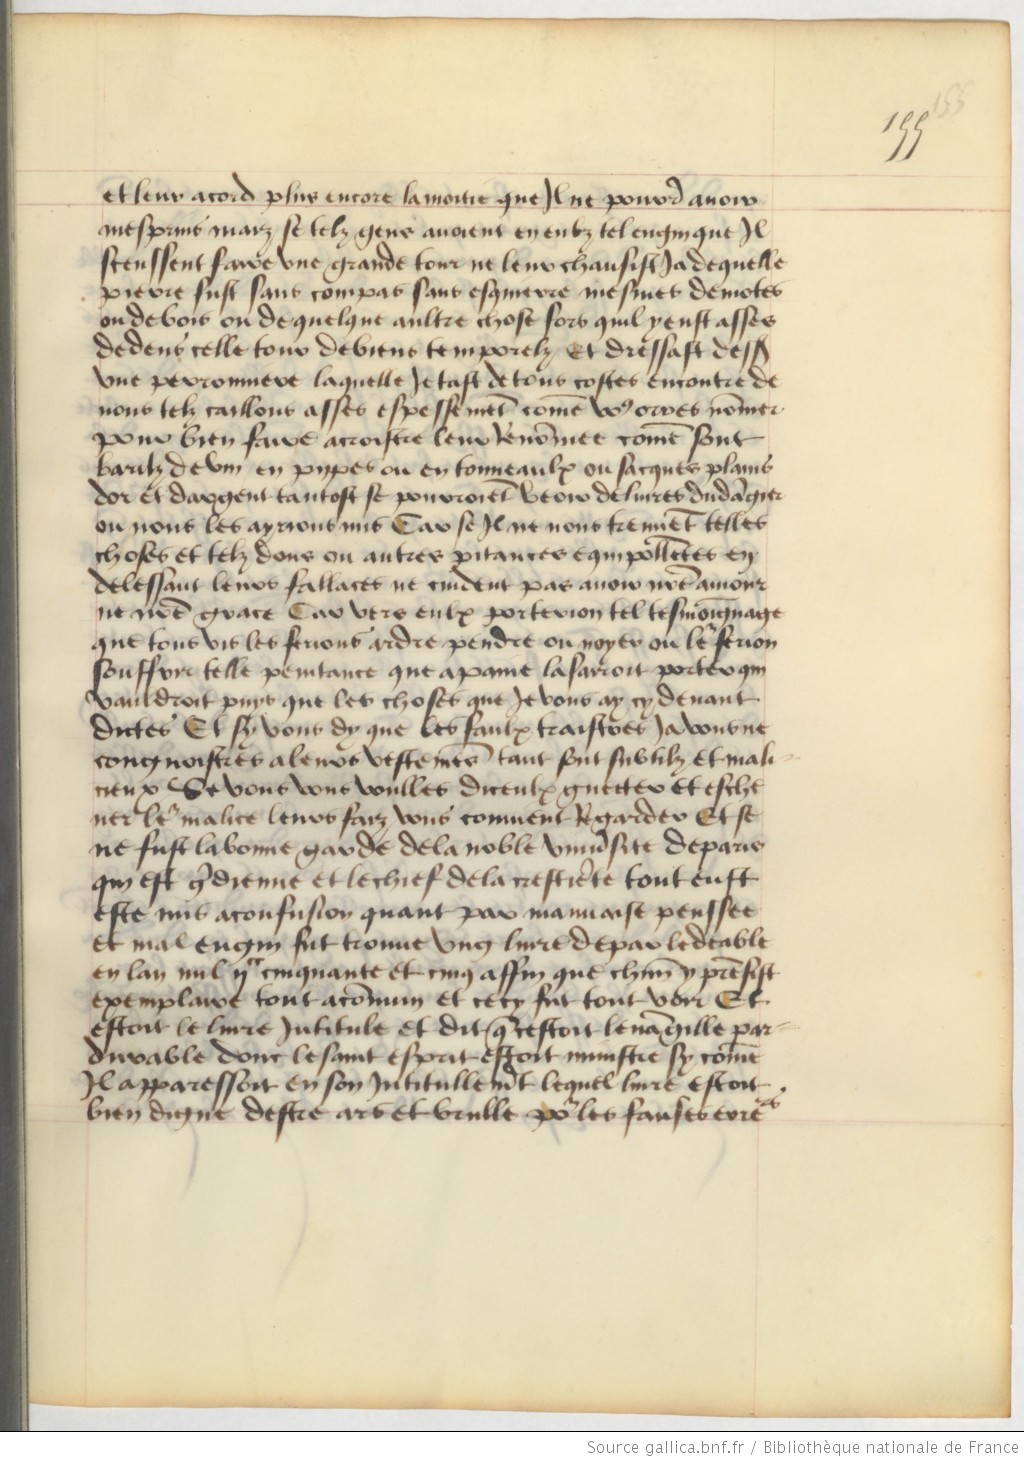 155
155
et leur acord plus encore la moitie que Il ne pourrd auoir
mespris maiz se telz gens auoient en eulz tel engin que Il
sceussent faire vne grande tour ne leur chausist Ja de quelle
pierre fust sans compas sans esquierre mesmes de motes
ou de bois ou de quelque aultre chose fors quil y eust asses
dedens celle tour de biens temporelz Et dressast dess
vne perronniere laquelle Jetast de tous costes encontre de
nous telz caillous asses espessemet come vo9 orres nomer
pour bien faire acroistre leur Renomee come sont
barilz de vin en pippes ou en tonneaulx ou sacques plains
dor et dargent tantost se pourroiet veoir deliures du dagier
ou nous les ayrions mis Car se Il ne nous treuuet telles
choses et telz dons ou autres pitances equipolletes en
delessant leurs fallaces ne cuident pas auoir nre amour
ne nre grace Car vers eulx porterion tel tesmoignage
que tous vis les ferions ardre pendre ou noyer ou le ferion
souffrir telle penitance que a paine la sarroit porter qui
vauldroit puys que les choses que Je vous ay cy deuant
dictes Et sy vous dy que les faulx traistres Ja vous ne
congnoistres a leurs vestemes tant sont subtilz et mali
cieux Se vous vous voulles diceulx guetter et esche
uer le malice leurs faiz vous conuient Regarder Et se
ne fust la bonne garde de la noble vniusite de paris
qui est gdienne et le chief de la crestiete tout eust
este mis a confusion quant par mauuaise penssee
et mal engin fut trouue vng liure de par le deable
en lan mil ijcc cinquante et cinq affin que chun y presist
exemplaire tout a comun et cecy fut tout voir Et
estoit le liure Jntitule et dit q cestoit leuagille par
durable donc le saint esprit estoit ministre sy come
Il apparessoit en son Jntitullemt lequel liure estoit
bien digne destre ars et brulle po les fauses erres
Source gallica.bnf.fr / Bibliothèque nationale de France